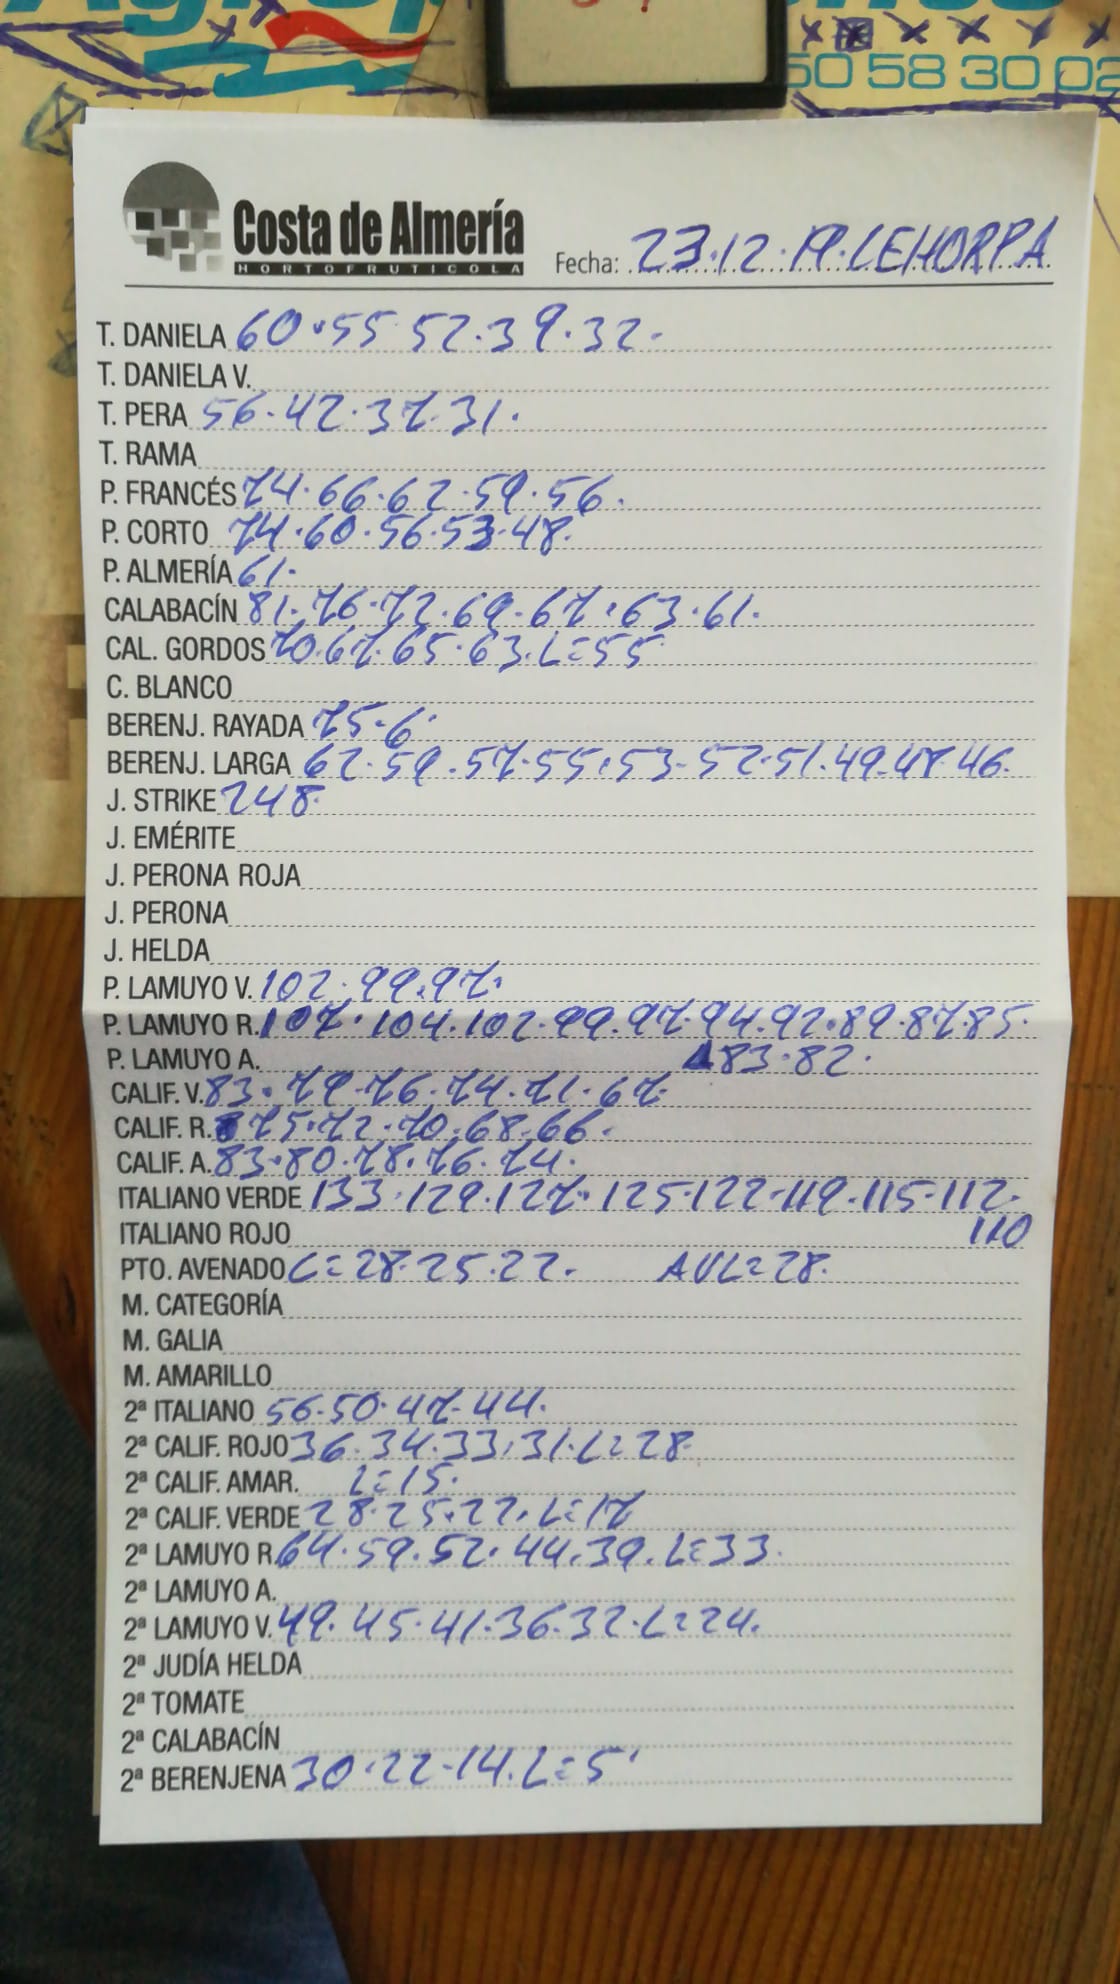 50 58 30 02
Costa de Almería
HORTOFRUTICOLA
Fecha: 23.12.19. LEHORPA
T. DANIELA 60.55 52.39.32.
T. DANIELA V.
T. PERA 56.42.37.31.
T. RAMA
P. FRANCÉS 74.66.62.59.56.
P. CORTO 74.60.56.53.48.
P. ALMERÍA 61.
CALABACÍN 81.76.72.69.67.63.61.
CAL. GORDOS 70.67.65.63.L=55
C. BLANCO
BERENJ. RAYADA 75-6
BERENJ. LARGA 62.59.57.55.53-52.51.49.47.46.
J. STRIKE 248.
J. EMÉRITE
J. PERONA ROJA
J. PERONA
J. HELDA
P. LAMUYO V. 102.99.97.
P. LAMUYO R. 107.104.102.99.97.94.92.89.87.85.
P. LAMUYO A. 83.82.
CALIF. V. 83.79.76.74.71.67.
CALIF. R. 75.72.70.68.66.
CALIF. A. 83.80.78.76.74.
ITALIANO VERDE 133.129.127.125.122-119.115-112.
ITALIANO ROJO 110
PTO. AVENADO C=28.25.22. AVL=28.
M. CATEGORÍA
M. GALIA
M. AMARILLO
2ª ITALIANO 56.50.47.44.
2ª CALIF. ROJO 36.34.33.31.L=28.
2ª CALIF. AMAR. L=15.
2ª CALIF. VERDE 28.25.22.L=17
2ª LAMUYO R. 64.59.52.44.39.L=33.
2ª LAMUYO A.
2ª LAMUYO V. 49.45.41.36.32.L=24.
2ª JUDÍA HELDA
2ª TOMATE
2ª CALABACÍN
2ª BERENJENA 30.22-14.L=5